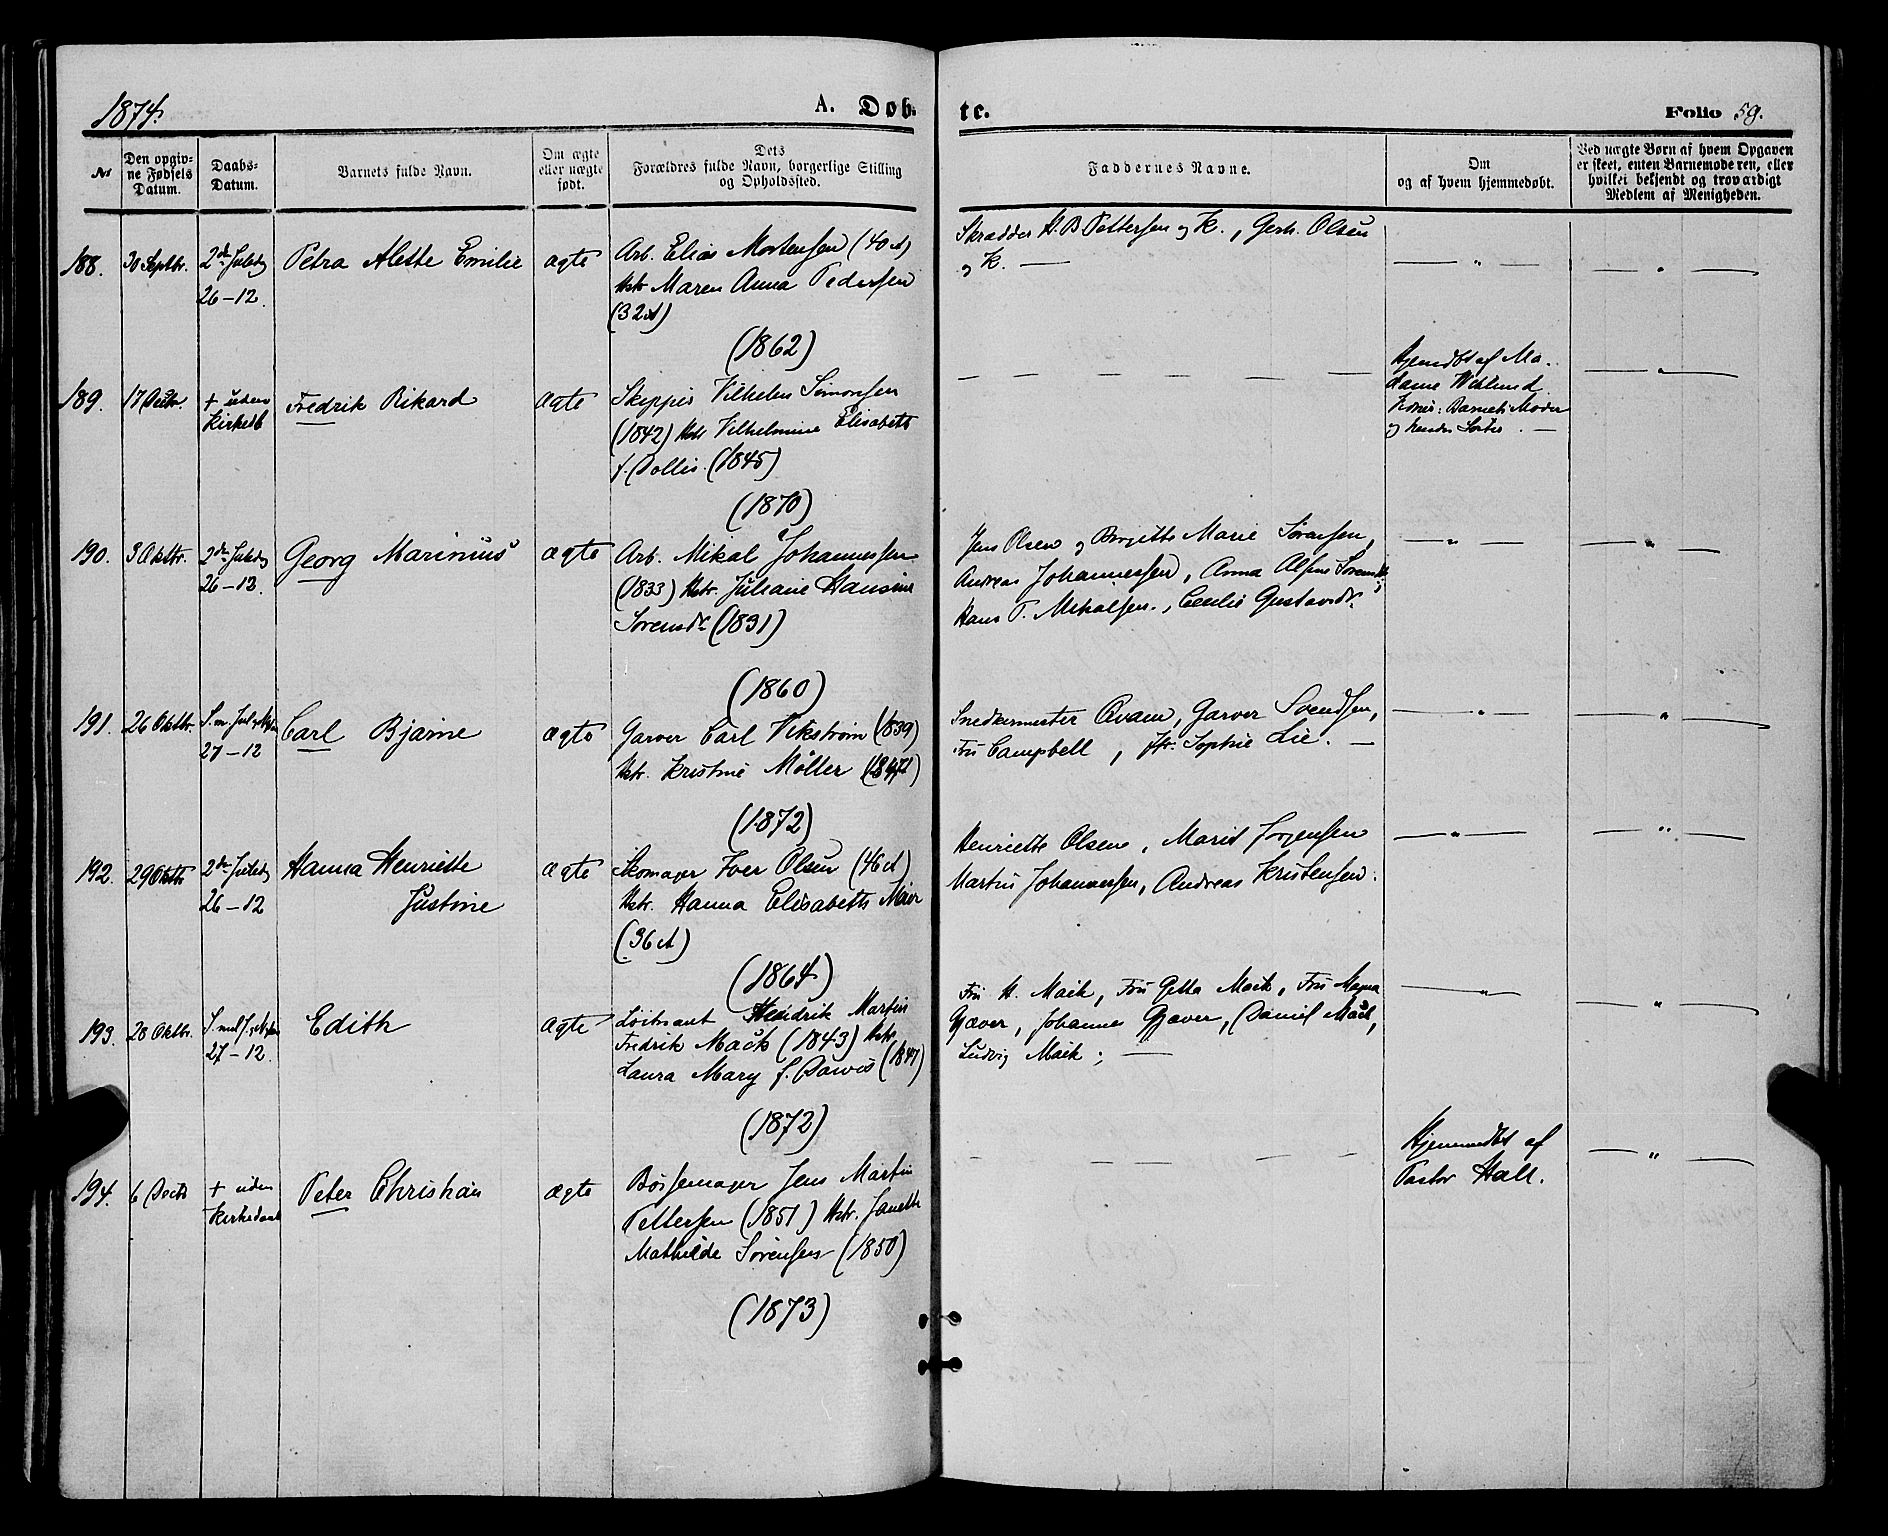 1874.
A. Døb-
te.
Folio 59.
№
Den opgiv-
ne Fødsels
Datum.
Daabs-
Datum.
Barnets fulde Navn.
Om ægte
eller uægte
født.
Dets
Forældres fulde Navn, borgerlige Stilling
og Opholdssted.
Faddernes Navne.
Om
og af hvem hjemmedøbt.
Ved uægte Børn af hvem Opgaven
er skeet, enten Barnemoderen, eller
hvilket bekjendt og troværdigt
Medlem af Menigheden.
188.
30 Septbr.
2den Juledag
26-12.
Petra Alette Emilie
ægte
Arb. Elias Mortensen (40 A)
Hstr Maren Anna Pedersen
(32 A)
(1862)
Skrædder H. B Pettersen og K., Gerh. Olsen
og K. —
— „ —
— „ —
189.
17 Decbr.
+ uden
Kirkedb
Fredrik Rikard
ægte
Skipper Vilhelm Simonsen
(1842) Hstr Vilhelmine Elisabeth
f. Dollis. (1845)
(1870)
Hjemdbt af Ma-
dame Wiklund
Barnets Moder
og hendes Søster. —
— „ —
190.
3 Oktbr.
2den Juledag
26-12.
Georg Marinius
ægte
Arb. Mikal Johannessen
(1833) Hstr. Juliane Hansine
Sørensdr (1831)
(1860)
Jens Olsen og Birgitte Marie Sørensen,
Andreas Johannessen, Anna Sørensdr,
Hans P. Mikalsen., Cecilie Gustavsdr.
— „ —
— „ —
191.
26 Oktbr.
27-12
Carl Bjarne
ægte
Garver Carl Vikstrøm (1839)
Hstr. Kristine Møller
(1872)
Snedkermester Qvam, Garver Svendsen,
Fru Campbell, Sophie Lie. —
— „ —
— „ —
192.
29 Oktbr
2den Juledag
26-12
Hanna Henriette
Justine
ægte
Skomager Iver Olsen (46 A)
Hstr. Hanna Elisabeth Maier
(36 A)
(1864)
Henriette Olsen, Marit Jørgensen
Martin Johannessen, Andreas Kristensen.
— „ —
— „ —
193.
28 Oktbr.
27-12.
Edith
ægte
Løitnant Hendrik Martin
Fredrik Mack (1843) Hstr.
Laura Mary f. Dawes (1847)
(1872)
Fru H. Mack, Fru Getta Mack, Fru Magna
Gjæver, Johannes Gjæver, Daniel Mack,
Ludvig Mack; —
— „ —
— „ —
194.
6 Decbr
+ uden
Kirkedaab
Peter Christian
ægte
Bøssemager Jens Martin
Pettersen (1851) Hstr. Janette
Mathilde Sørensen (1850)
(1873)
Hjemmedbt af
Pastor Hall.
— „ —